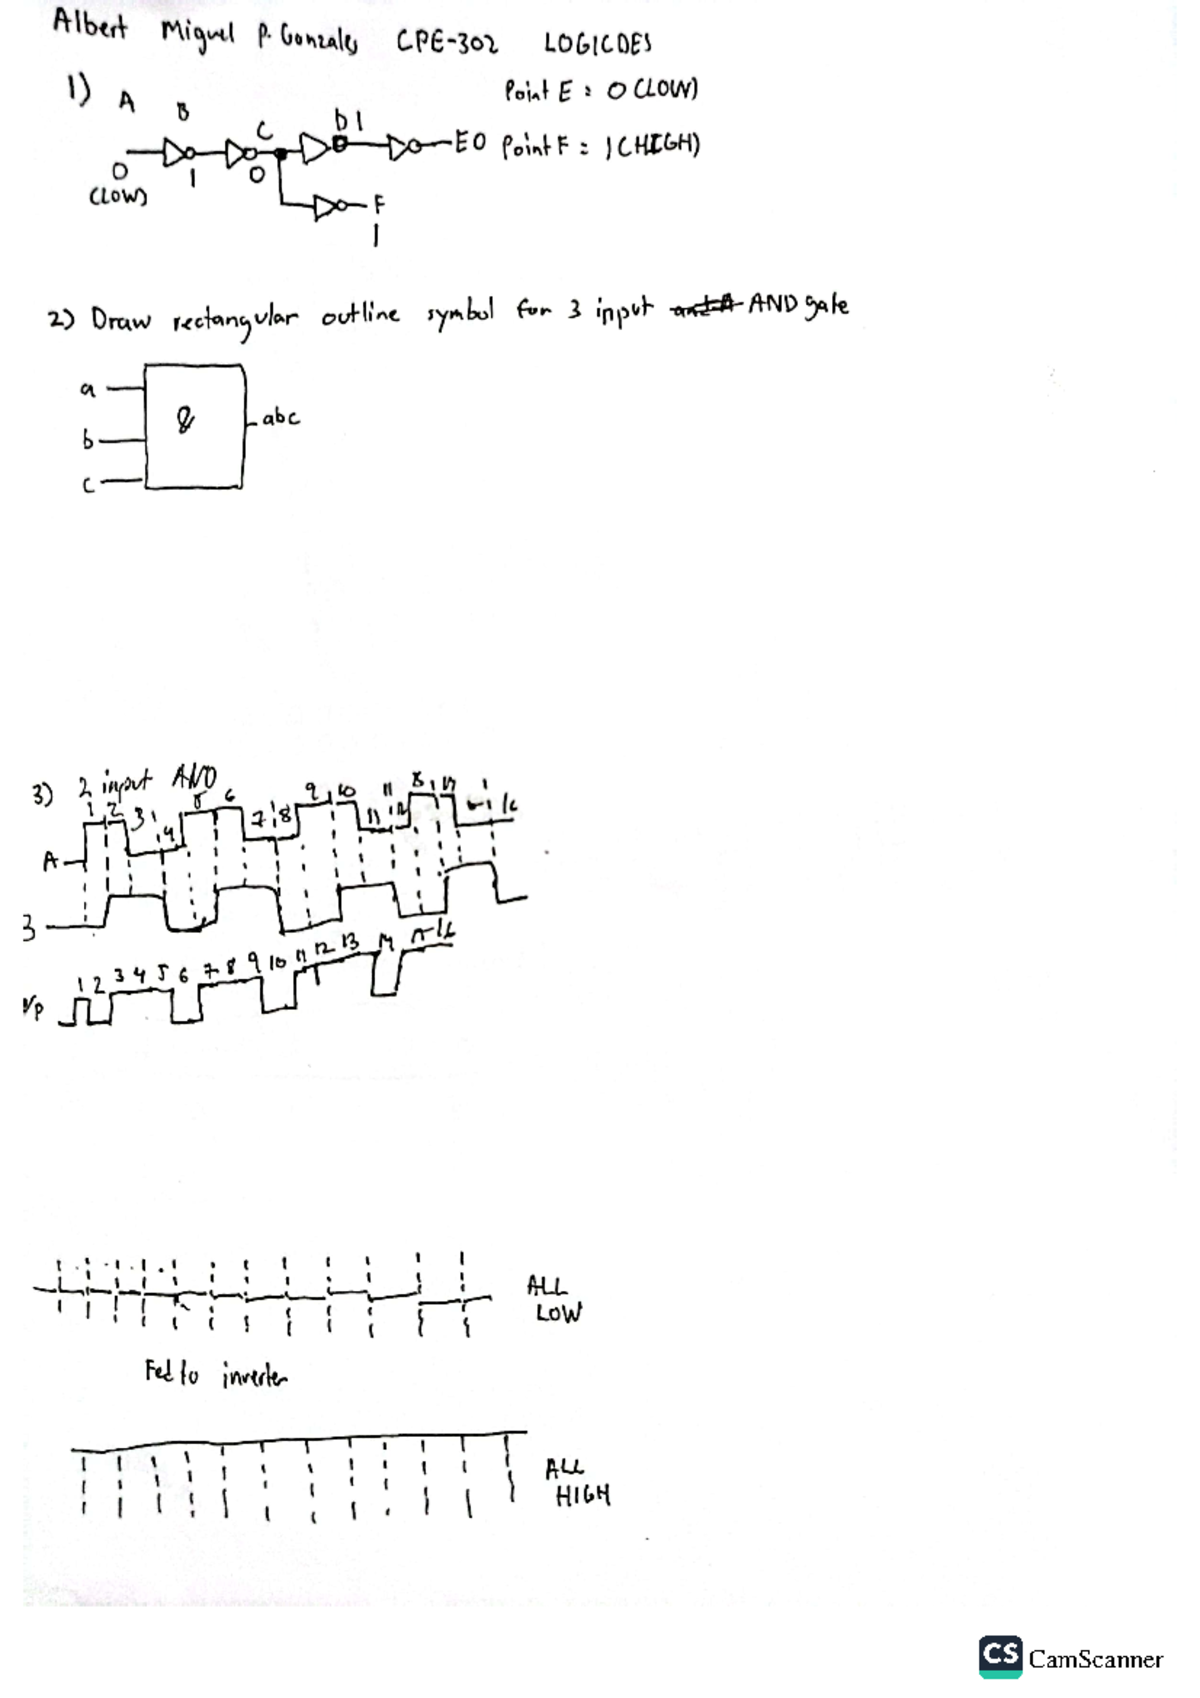 Albert Miguel P. Gonzales CPE-302 LOGICDES
1) A B C D1 E0 Point E : 0 (LOW)
Point F = 1 (HIGH)
0 1 0
(LOW) F
1
2) Draw rectangular outline symbol for 3 input AND gate
a
& abc
b
c
3) 2 input AND
1 2 3 4 5 6 7 8 9 10 11 12
A
1 2 3 4 5 6 7 8 9 10 11 12 13 14
ALL
LOW
Fed to inverter
ALL
HIGH
CS CamScanner